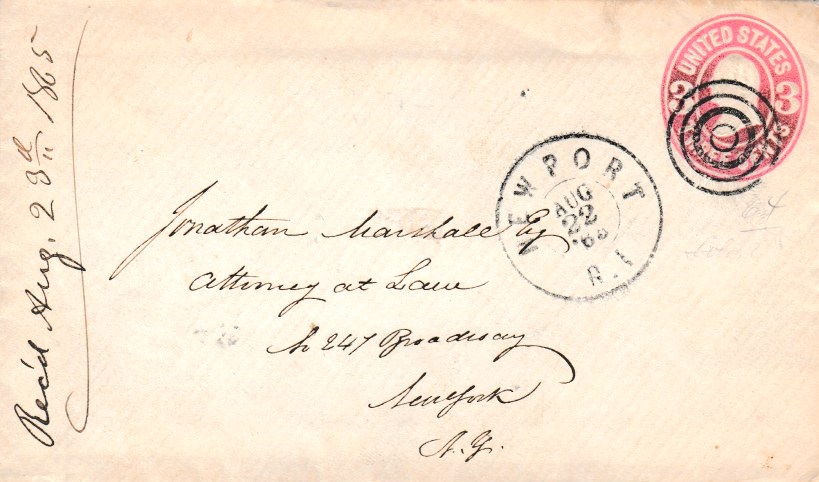 Rec'd Aug. 23d 1865
UNITED STATES
3 3
NEWPORT
AUG
22
R.I
Jonathan Marshall Esq
Attorney at Law
No 247 Broadway
New York
N.Y.
64